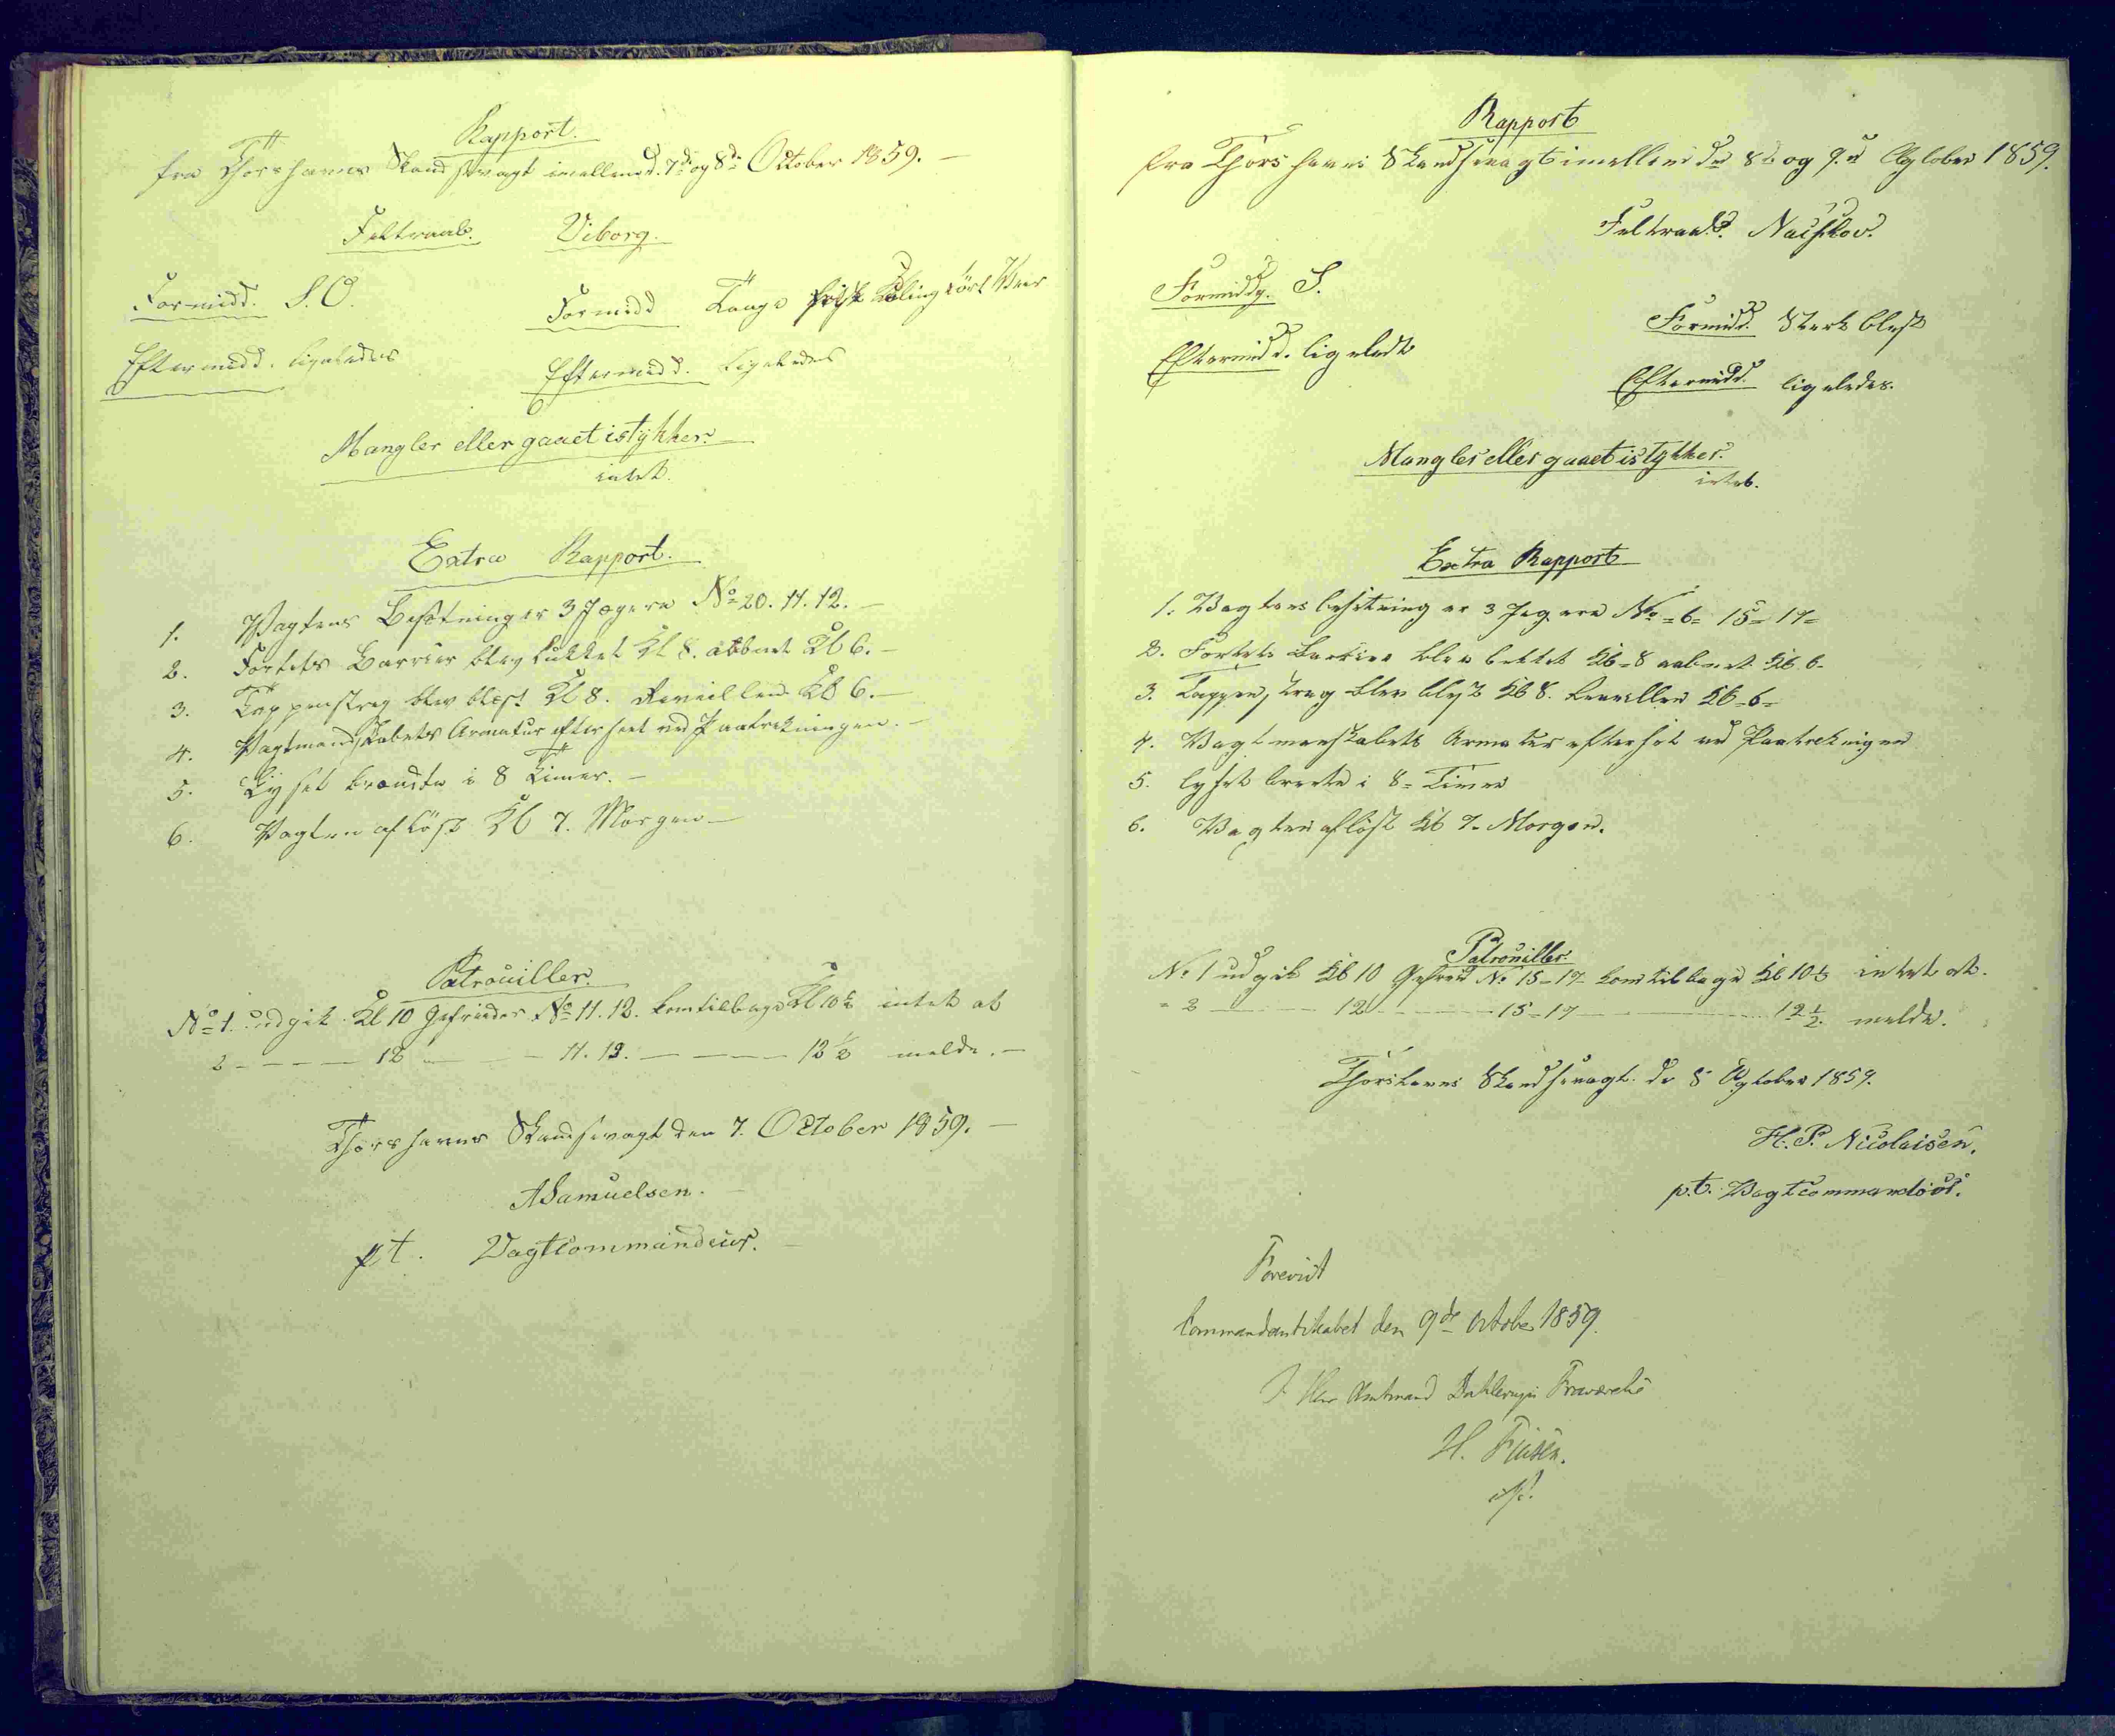 Rapport.
fra Thorshavns Skandsevagt imellem d. 7de og 8de October 1859.
Feltraab. Viborg.
Formidd. S.O. Formidd Taage frisk Kuling tört Veir
Eftermidd. ligeledes Eftermidd. ligeledes
Mangler eller gaaet istykker.
intet.
Extra Rapport.
1. Vagtens Besætning er 3 Jægere No 20. 11. 12.
2. Fortets Barrier blev lukket Kl 8. aabnet Kl 6.
3. Tappenstreg blev blæst Kl 8. Reveillen Kl 6.
4. Vagtmandskabets Armatur efterseet ved Paatrækningen.
5. Lyset brændte i 8 Timer.
6. Vagten aflöst Kl 7. Morgen
Patrouiller.
No 1. udgik Kl 10 Gefreider No 11. 12. kom tilbage Kl 10½ intet at
2 - - - - 12 - - - 11. 12. - - - - 12½ melde.
Thorshavns Skandsevagt den 7. October 1859.
ASamuelsen.
pt. Vagtcommandeur.
Rapport
fra Thorshavns Skandsevagt imellem den 8d og 9.d Ogtober 1859.
Feltraab. Naiskov.
Formiddg. S.
Formidd. Sterk blæst
Eftermidd. ligeledes
Eftermidd. ligeledes.
Mangler eller gaaet istykker.
intet.
Extra Rapport
1. Vagtens besætning er 3 Jegere No = 6 = 15 = 17 =
2. Fortets Barrier blev lukket Kl = 8 aabnet Kl. 6 -
3. Tappenstreg blev blæst Kl 8. Reveillen Kl = 6 =
4. Vagtmanskabets Armatur efterset ved Paatrekningen
5. lyset brente i 8 = Timer
6. Vagten aflöst Kl 7 - Morgen.
Patrouiller
No 1 udgik Kl 10 Gefreid No 15 - 17 kom tilbage Kl 10½ intet at
- 2 - 12 - 15 - 17 - 12½ melde.
Thorshavns Skandsevagt. d. 8 Ogtober 1859.
H. P. Nicolaisen.
p.t. Vagtcommandeur.
Forevist
Commandantskabet den 9de October 1859.
I Herr Amtmand Dahlerups Fraværelse
H. Tillisch